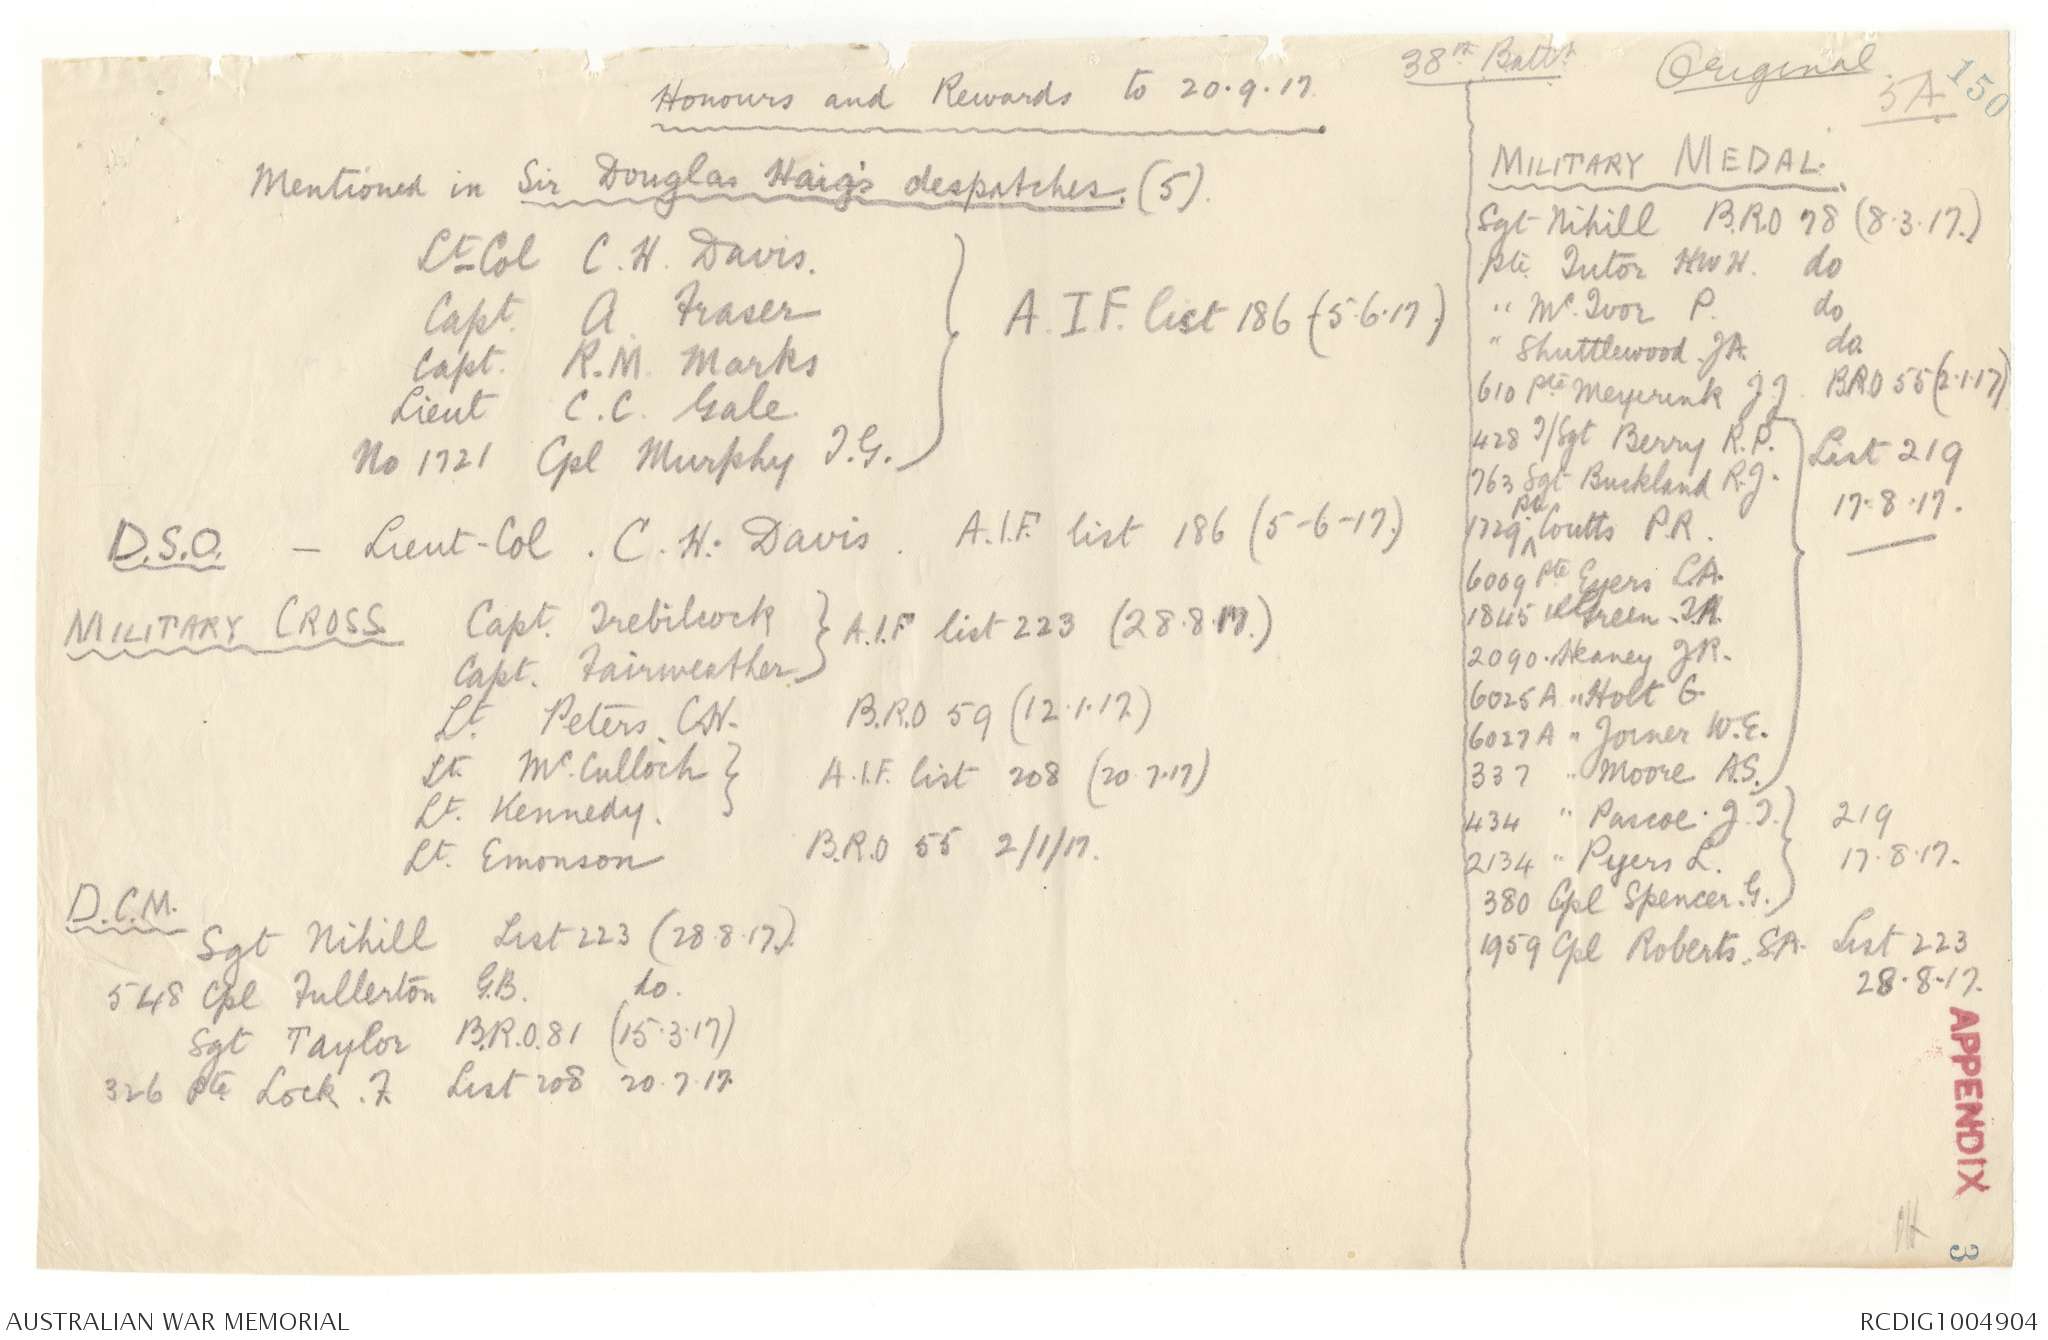 38th Battn
Original
5A
150
Honours and Rewards to 20.9.17
Mentioned in Sir Douglas Haig's despatches. (5).
Lt-Col C. H. Davis.
Capt. A Fraser
Capt. R.M. Marks
Lieut C.C. Gale
No 1721 Cpl Murphy T.G.
A.I.F. list 186 (5.6.17.)
D.S.O. - Lieut-Col. C. H. Davis. A.I.F. list 186 (5-6-17.)
MILITARY CROSS Capt. Trebilcock
Capt. Fairweather
A.I.F list 223 (28.8.17.)
Lt. Peters. C.H. B.R.O 59 (12.1.17)
Lt. McCulloch
Lt. Kennedy.
A.I.F. list 208 (20.7.17)
Lt. Emonson B.R.O 55 2/1/17.
D.C.M.
Sgt Nihill List 223 (28.8.17.)
548 Cpl Fullerton G.B. do.
Sgt Taylor B.R.O.81 (15.3.17)
326 Pte Lock. F. List 208 20.7.17
MILITARY MEDAL.
Sgt Nihill B.R.O 78 (8.3.17.)
Pte. Tutor H.W.H. do
" Mc.Ivor P. do
" Shuttlewood. J.A. do.
610 Pte Meyerink J.J. B.R.O 55 (2.1.17)
428 T/Sgt Berry R.P.
763 Sgt Buckland R.J.
1729 Pte Coutts P.R.
6009 Pte Eyers L.A.
1845 Green. T.H.
2090. Heaney J.R.
6025A " Holt G.
6027A " Joiner W.E.
337 " Moore A.S.
List 219
17.8.17.
434 " Pascoe. J.T.
2134 " Pyers L.
380 Cpl Spencer. G.
219
17.8.17.
1959 Cpl Roberts. S.A. List 223
28.8.17.
APPENDIX
3
AUSTRALIAN WAR MEMORIAL
RCDIG1004904